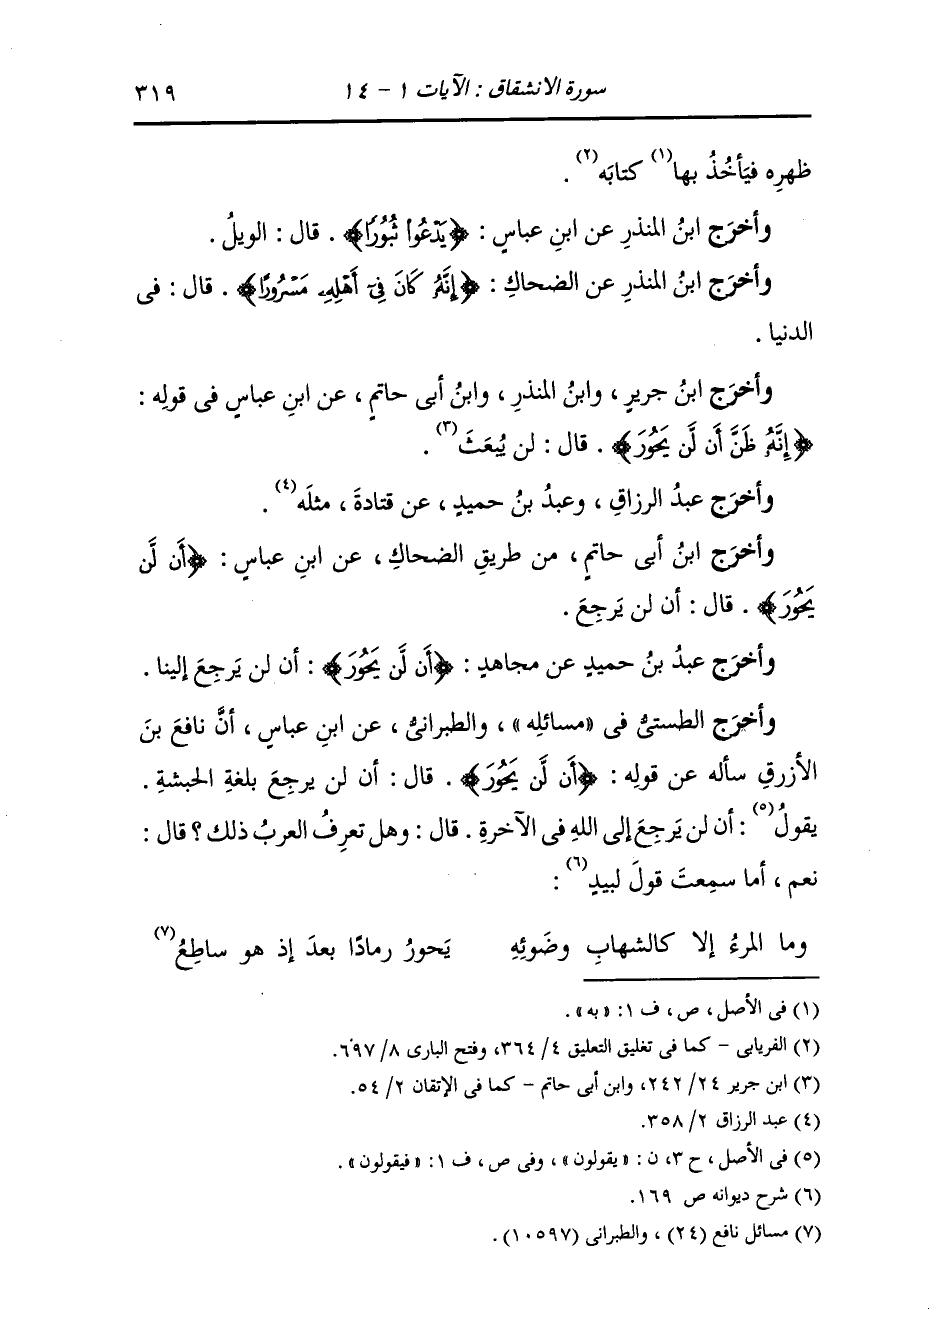 سورة الانشقاق : الآيات ١ - ١٤ ٣١٩
ظهرِه فيَأخُذُ بها(١) كتابَه(٢) .
وأخرَج ابنُ المنذرِ عن ابنِ عباسٍ : ﴿يَدْعُوا ثُبُورًا﴾ . قال : الويلُ .
وأخرَج ابنُ المنذرِ عن الضحاكِ : ﴿إِنَّهُ كَانَ فِىٓ أَهْلِهِۦ مَسْرُورًا﴾ . قال : فى
الدنيا .
وأخرَج ابنُ جريرٍ ، وابنُ المنذرِ ، وابنُ أبى حاتمٍ ، عن ابنِ عباسٍ فى قولِه :
﴿إِنَّهُ ظَنَّ أَن لَّن يَحُورَ﴾ . قال : لن يُبعَثَ(٣) .
وأخرَج عبدُ الرزاقِ ، وعبدُ بنُ حميدٍ ، عن قتادةَ ، مثلَه(٤) .
وأخرَج ابنُ أبى حاتمٍ ، من طريقِ الضحاكِ ، عن ابنِ عباسٍ : ﴿أَن لَّن
يَحُورَ﴾ . قال : أن لن يَرجِعَ .
وأخرَج عبدُ بنُ حميدٍ عن مجاهدٍ : ﴿أَن لَّن يَحُورَ﴾ : أن لن يَرجِعَ إلينا .
وأخرَج الطستىُّ فى «مسائلِه» ، والطبرانىُّ ، عن ابنِ عباسٍ ، أنَّ نافعَ بنَ
الأزرقِ سأله عن قولِه : ﴿أَن لَّن يَحُورَ﴾ . قال : أن لن يرجِعَ بلغةِ الحبشةِ .
يقولُ(٥) : أن لن يَرجِعَ إلى اللهِ فى الآخرةِ . قال : وهل تعرِفُ العربُ ذلك ؟ قال :
نعم ، أما سمِعتَ قولَ لبيدٍ(٦) :
وما المرءُ إلا كالشهابِ وضَوئِهِ يَحورُ رمادًا بعدَ إذ هو ساطِعُ(٧)
(١) فى الأصل ، ص ، ف ١: «به» .
(٢) الفريابى - كما فى تغليق التعليق ٤/ ٣٦٤، وفتح البارى ٨/ ٦٩٧.
(٣) ابن جرير ٢٤/ ٢٤٢، وابن أبى حاتم - كما فى الإتقان ٢/ ٥٤.
(٤) عبد الرزاق ٢/ ٣٥٨.
(٥) فى الأصل ، ح ٣، ن : «يقولون» ، وفى ص ، ف ١: «فيقولون» .
(٦) شرح ديوانه ص ١٦٩.
(٧) مسائل نافع (٢٤) ، والطبرانى (١٠٥٩٧) .